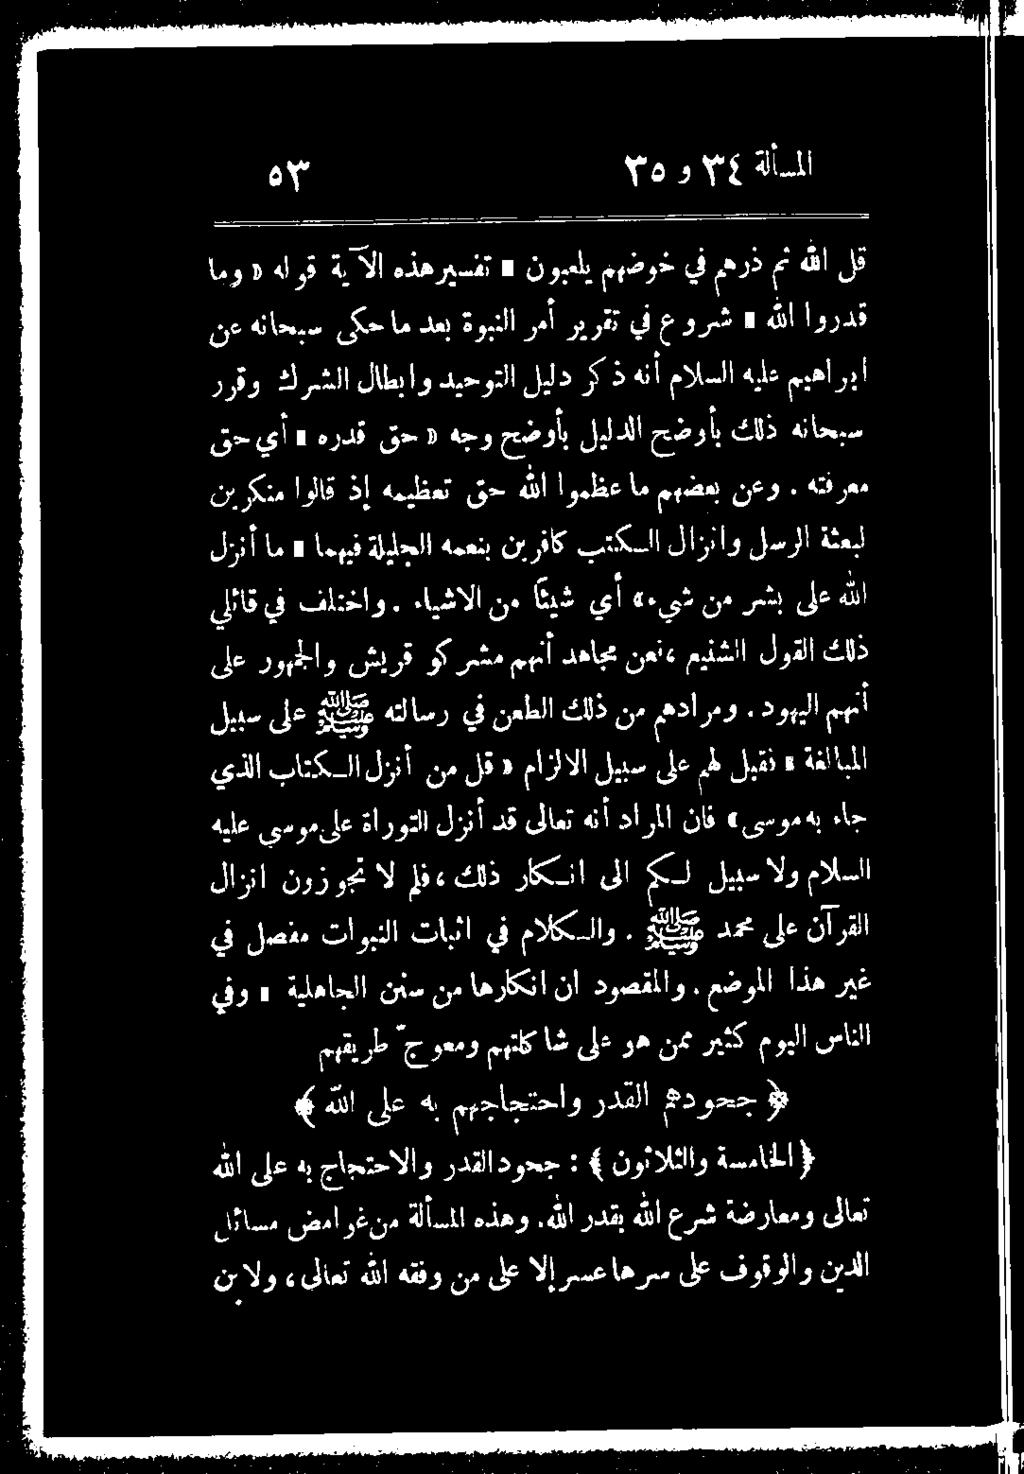 المسألة ٣٤ و ٣٥ ٥٣
قل الله ثم ذرهم في خوضهم يلعبون » تفسير هذه الآية قوله « وما
قدروا الله » شروع في تقرير أمر النبوة بعد ما حكى سبحانه عن
ابراهيم عليه السلام أنه ذكر دليل التوحيد وابطال الشرك وقرر
سبحانه ذلك بأوضح الدليل بأوضح وجه « حق قدره » أي حق
معرفته . وعن بعضهم ما عظموا الله حق تعظيمه إذ قالوا منكرين
لبعثة الرسل وانزال الكتب كافرين بنعمه الجليلة فيهما « ما أنزل
الله على بشر من شيء» أي شيئا من الاشياء . واختلف في قائلي
ذلك القول الشنيع ، فعن مجاهد أنهم مشركو قريش والجمهور على
أنهم اليهود . ومرادهم من ذلك الطعن في رسالته ﷺ على سبيل
المبالغة » فقيل لهم على سبيل الالزام « قل من أنزل الكتاب الذي
جاء به موسى» فان المراد أنه تعالى قد أنزل التوراة على موسى عليه
السلام ولا سبيل لكم الى انكار ذلك ، فلم لا تجوزون انزال
القرآن على محمد ﷺ . والكلام في اثبات النبوات مفصل في
غير هذا الموضع . والمقصود ان انكارها من سنن الجاهلية » وفي
الناس اليوم كثير ممن هو على شاكلتهم ومعوج ّ طريقهم
﴿ جحودهم القدر واحتجاجهم به على الله ﴾
﴿ الخامسة والثلاثون ﴾ : جحود القدر والاحتجاج به على الله
تعالى ومعارضة شرع الله بقدر الله . وهذه المسألة من غوامض مسائل
الدين والوقوف على سرها عسر إلا على من وفقه الله تعالى ، ولابن